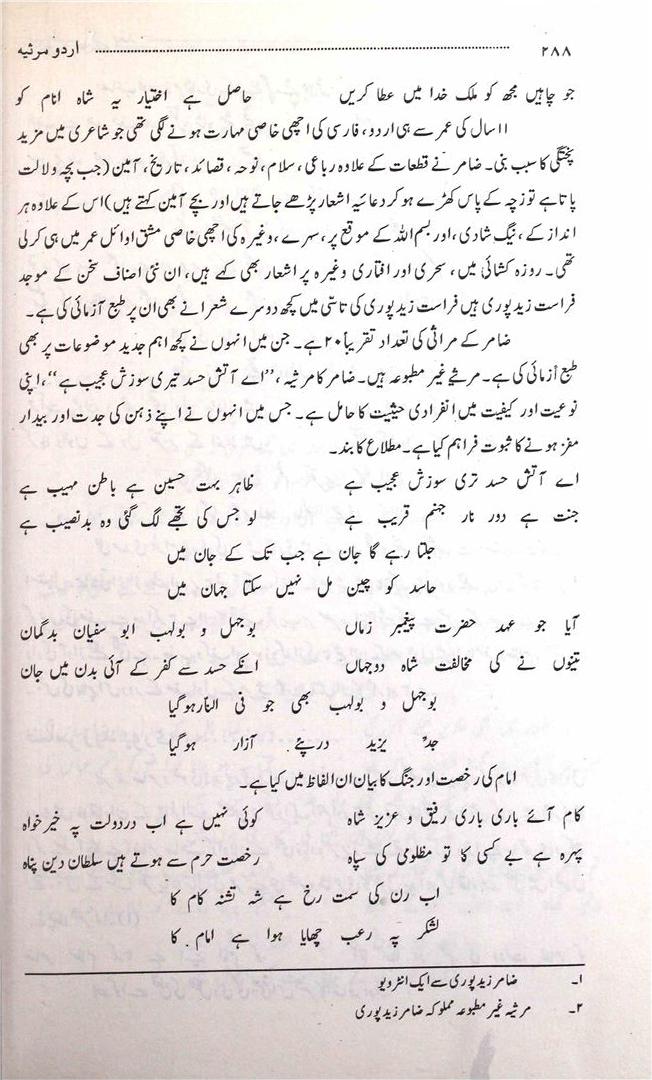 ۲۸۸ اردو مرثیہ
جو چاہیں مجھ کو ملک خدا میں عطا کریں حاصل ہے اختیار یہ شاہ انام کو
۱۱سال کی عمر سے ہی اردو، فارسی کی اچھی خاصی مہارت ہونے لگی تھی جو شاعری میں مزید
پختگی کا سبب بنی۔ ضامر نے قطعات کے علاوہ رباعی، سلام، نوحہ، قصائد، تاریخ، آمین (جب بچہ ولالت
پاتا ہے تو زچہ کے پاس کھڑے ہوکر دعائیہ اشعار پڑھے جاتے ہیں اور بچے آمین کہتے ہیں) اس کے علاوہ ہر
انداز کے، نیگ شادی، اور بسم اللہ کے موقع پر، سہرے، وغیرہ کی اچھی خاصی مشق اوائل عمر میں ہی کر لی
تھی۔ روزہ کشائی میں، سحری اور افتاری وغیرہ پر اشعار بھی کہے ہیں، ان نئی اصناف سخن کے موجد
فراست زیدپوری ہیں فراست زیدپوری کی تاسی میں کچھ دوسرے شعرا نے بھی ان پر طبع آزمائی کی ہے۔
ضامر کے مراثی کی تعداد تقریباً ۲۰ ہے۔ جن میں انہوں نے کچھ اہم جدید موضوعات پر بھی
طبع آزمائی کی ہے۔ مرثیے غیر مطبوعہ ہیں۔ ضامر کا مرثیہ، ’’اے آتش حسد تیری سوزش عجیب ہے‘‘، اپنی
نوعیت اور کیفیت میں انفرادی حیثیت کا حامل ہے۔ جس میں انہوں نے اپنے ذہن کی جدت اور بیدار
مغز ہونے کا ثبوت فراہم کیا ہے۔ مطلاع کا بند۔
اے آتش حسد تری سوزش عجیب ہے ظاہر بہت حسین ہے باطن مہیب ہے
جنت ہے دور نار جہنم قریب ہے لو جس کی تجھے لگ گئی وہ بدنصیب ہے
جلتا رہے گا جان ہے جب تک کے جان میں
حاسد کو چین مل نہیں سکتا جہان میں
آیا جو عہد حضرت پیغمبر زماں بوجہل و بولہب ابو سفیان بدگمان
تینوں نے کی مخالفت شاہ دوجہاں انکے حسد سے کفر کے آئی بدن میں جان
بوجہل و بولہب بھی جو فی النار ہوگیا
جدِّ یزید درپئے آزار ہوگیا
امام کی رخصت اور جنگ کا بیان ان الفاظ میں کیا ہے۔
کام آئے باری باری رفیق و عزیز شاہ کوئی نہیں ہے اب دردولت پہ خیرخواہ
پہرہ ہے بے کسی کا تو مظلومی کی سپاہ رخصت حرم سے ہوتے ہیں سلطان دین پناہ
اب رن کی سمت رخ ہے شہ تشنہ کام کا
لشکر پہ رعب چھایا ہوا ہے امام کا
۱۔ ضامر زیدپوری سے ایک انٹرویو
۲۔ مرثیہ غیر مطبوعہ مملوکہ ضامر زیدپوری